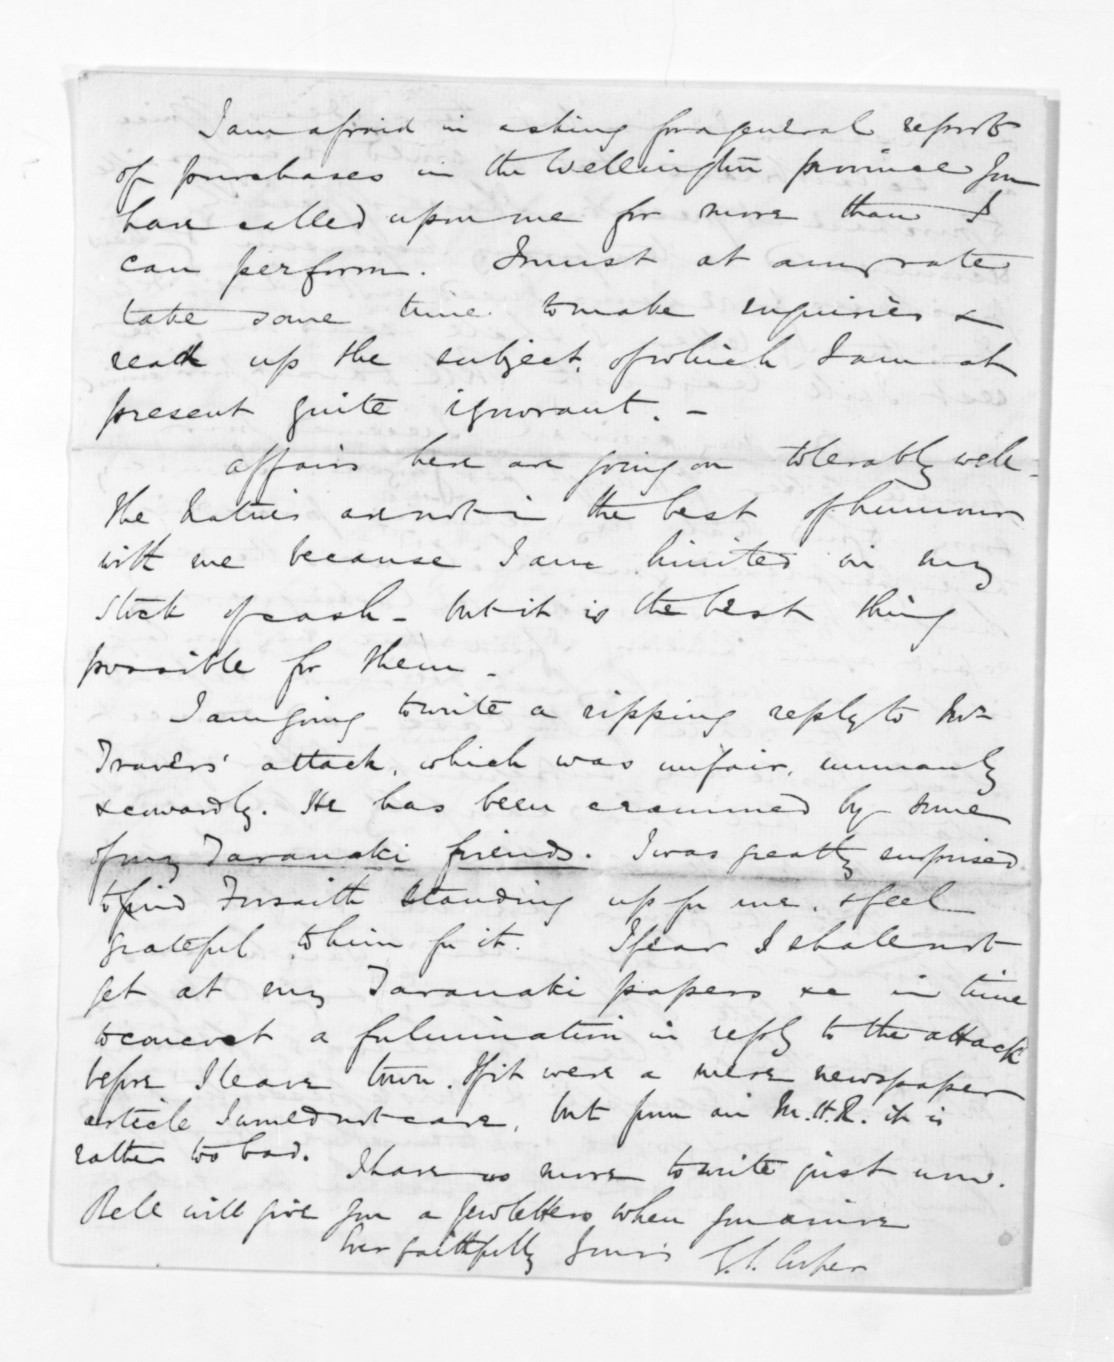 I am afraid in asking for a general report
of purchases in the Wellington province you
have called upon me for more than I
can perform. I must at any rate
take some time to make inquiries &
read up the subject, of which I am at
present quite ignorant. -
affairs here are going on tolerably well -
the Natives are not in the best of humour
with me because I am limited in my
stock of cash - but it is the best thing
possible for them -
I am going to write a ripping reply to Mr
Travers' attack, which was unfair, unmanly
& cowardly. He has been crammed by some
of my Taranaki friends. I was greatly surprised
to find Forsaith standing up for me, & feel
grateful to him for it. I fear I shall not
get at my Taranaki papers &c in time
to concoct a fulmination in reply to the attack
before I leave town. If it were a mere newspaper
article I would not care, but from an M.H.R. it is
rather too bad.
I have no more to write just now.
Bell will give you a few letters when you arrive
Ever faithfully Yours G. S. Cooper